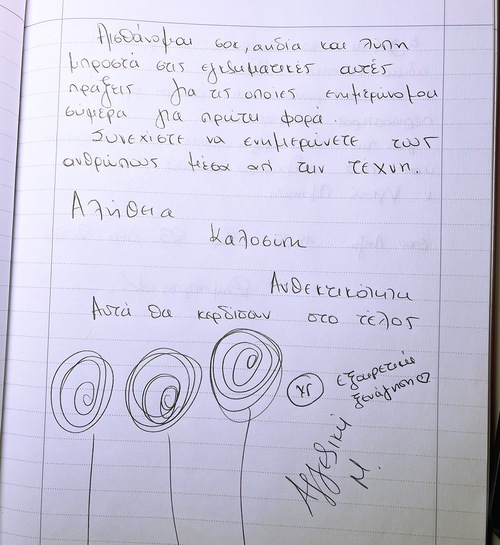 Αισθάνομαι σοκ, αηδία και λύπη
μπροστά στις εγκληματικές αυτές
πράξεις για τις οποίες ενημερώνομαι
σήμερα για πρώτη φορά.
Συνεχίστε να ενημερώνετε τους
ανθρώπους μέσα απ την τέχνη.
Αλήθεια
Καλοσύνη
Ανθεκτικότητα
Αυτά θα κερδίσουν στο τέλος
εξαιρετική
ξενάγηση
Αγγελική
Μ.